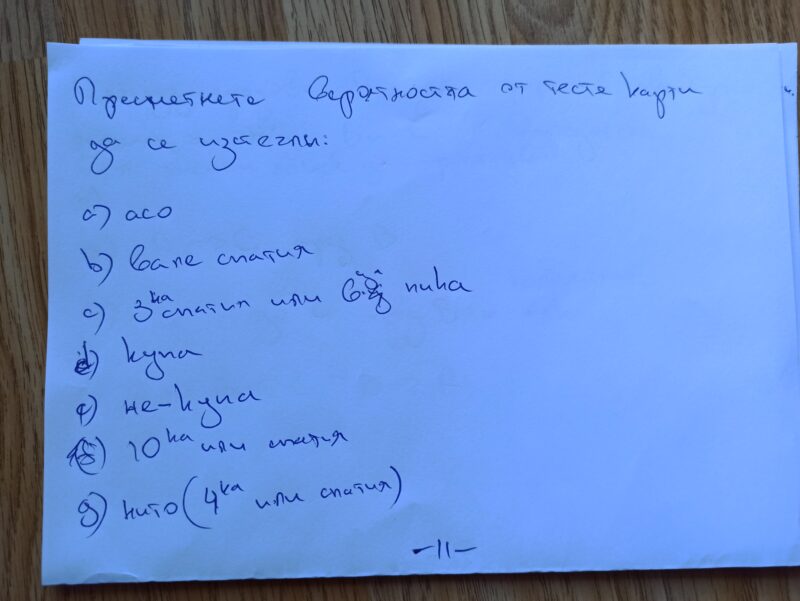 Пресметнете вероятността от тесте карти
да се изтегли:
a) асо
b) вале спатия
c) 3ка спатия или 6 пика
d) купа
e) не-купа
f) 10ка или спатия
g) нито (4ка или спатия)
-11-